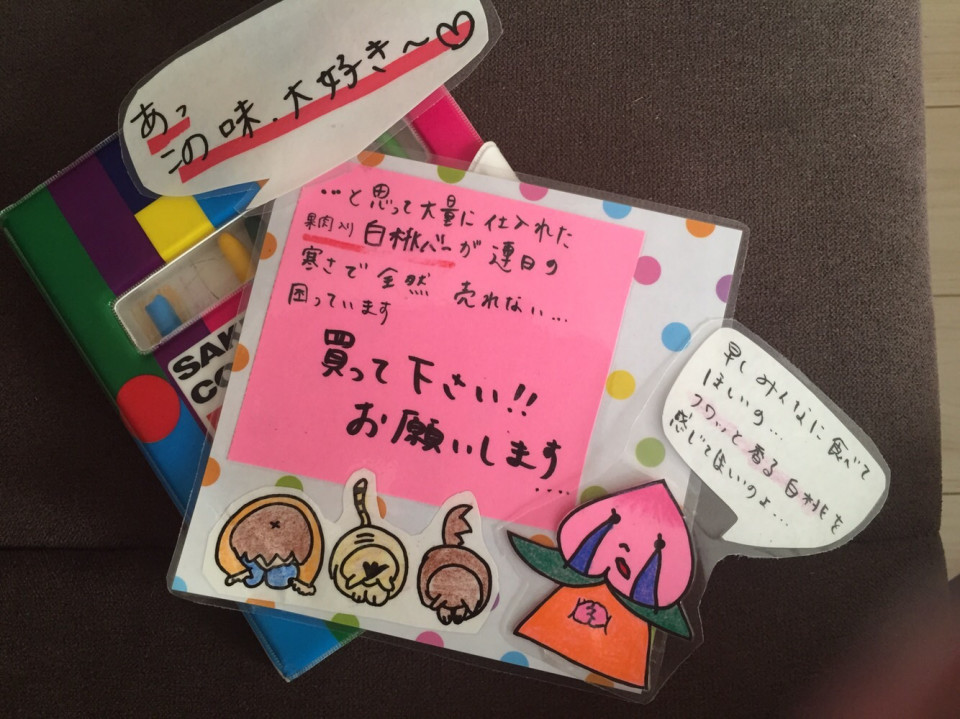 あっ
この味、大好き〜♡
…と思って大量に仕入れた
果肉入り白桃バーが連日の
寒さで全然 売れない…
困っています
買って下さい!!
お願いします
....
早くみんなに食べて
ほしいの…
フワッと香る白桃を
感じてほしいのよ…
SAK
CO